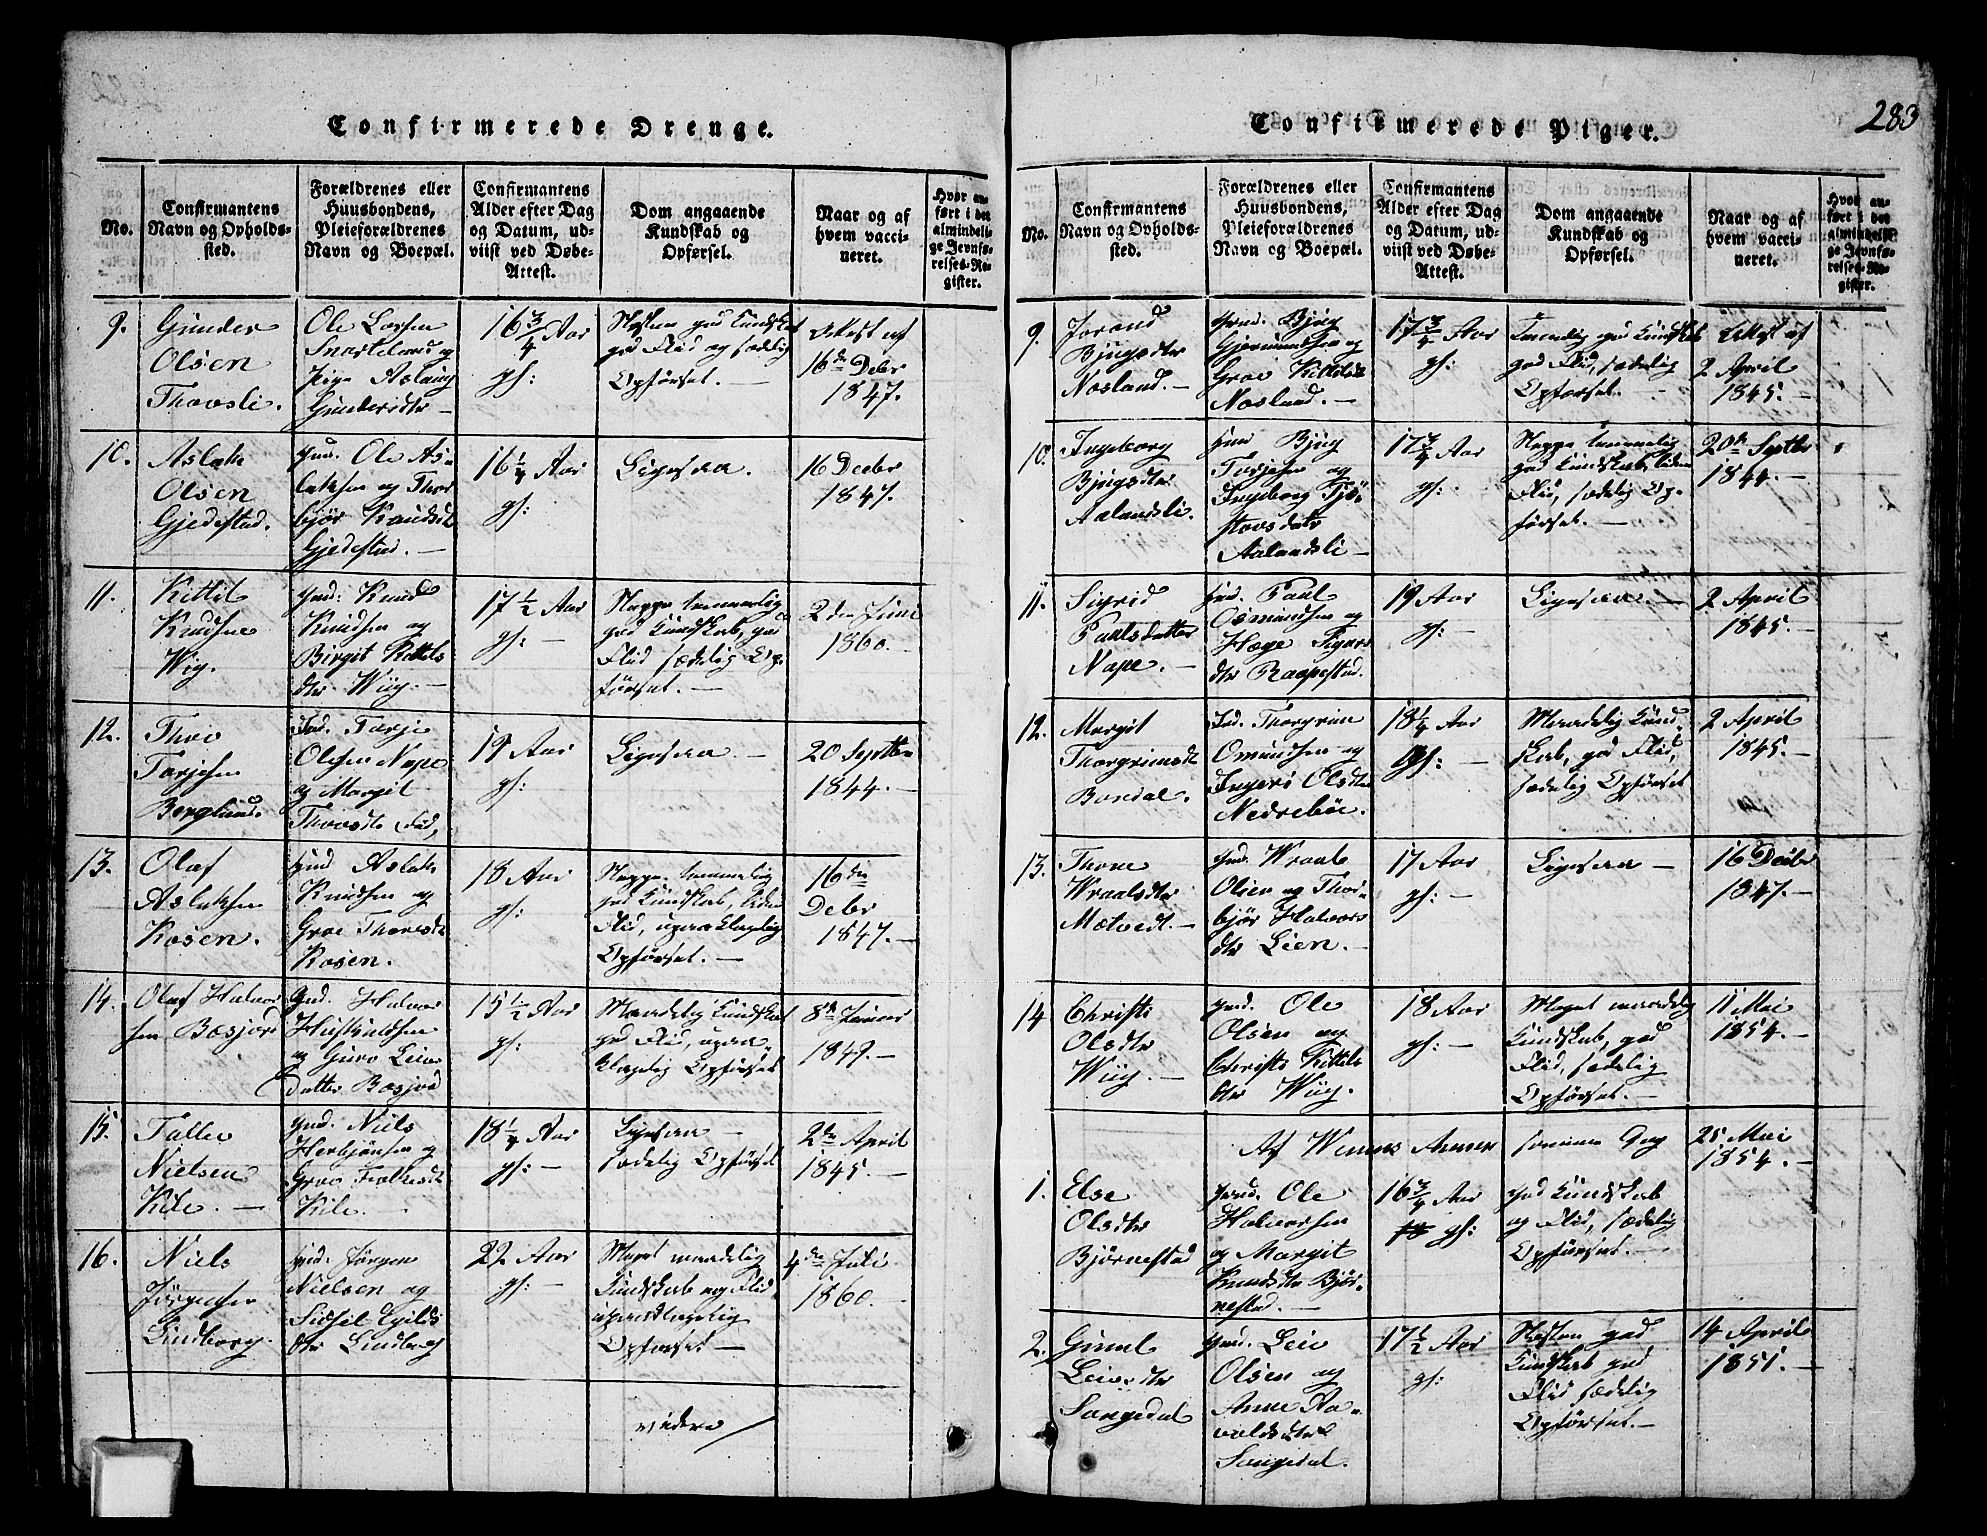 283
Confirmerede Drenge.
No.
Confirmantens
Navn og Opholds-
sted.
Forældrenes eller
Huusbondens,
Pleieforældrenes
Navn og Boepæl.
Confirmantens
Alder efter Dag
og Datum, ud-
viist ved Døbe-
Attest.
Dom angaaende
Kundskab og
Opførsel.
Naar og af
hvem vacci-
neret.
Hvor an-
ført i det
almindeli-
ge Jevnfø-
relses-Re-
gister.
9.
Gunder
Olsen
Thovsli.
Ole Larsen
og
Pige Aslaug
Gundersdtr
16 3/4 Aar
gl:
Næsten god Kundskab
god Flid og sædelig
Opførsel. —
Attest af
16de Decbr
1847.
10.
Aslak
Olsen
Gjedestad.
Gmd. Ole As-
laksen og Thor
bjør Knudsdtr
Gjedestad. —
16 1/4 Aar
gl:
Ligesaa.
16 Decbr
1847. —
11.
Kittil
Knudsen
Wiig.
Gmd. Knud
Knudsen og
Birgit Kittels
dtr Wiig. —
17 1/2 Aar
gl: —
Neppe temmelig
god Kundskab, god
Flid sædelig Op-
førsel. —
2den Juni
1860. —
12.
Thov
Torjesen
Berglund.
Ind. Torje
Olsen Nape
og Margit
Thovsdtr
19 Aar
gl:
Ligesaa —
20 Septbr
1844. —
13.
Olaf
Aslaksen
Rosen.
Gmd Aslak
Knudsen og
Groe Thoresdtr
Rosen.
18 Aar
gl:
Neppe temmelig
god Kundskab, liden
Flid, upaaklagelig
Opførsel. —
16de
Decbr
1847. —
14.
Olaf Halvor
sen Bæsjord
Gmd. Halvor
og Guro Leivs
datter Bæsjord
15 1/2 Aar
gl:
Maadelig Kundskab
god Flid, upaa-
klagelig Opførsel
8de Januar
1849. —
15.
Tallev
Nielsen
Kile. —
Gmd. Niels
Herbjørnsen og
Groe Tallevsdtr
Kile.
18 1/4 Aar
gl: —
Ligesaa —
sædelig Opførsel
2den April
1845. —
16.
Niels
Jørgensen
Lindborg.
Gmd. Jørgen
Nielsen og
Sidsel Egilds
dtr Lindborg
22 Aar
gl: —
Meget maadelig
Kundskab og Flid,
upaaklagelig
Opførsel —
4de Juli
1860.
videre
Confirmerede Piger.
No.
Confirmantens
Navn og Opholds-
sted.
Forældrenes eller
Huusbondens,
Pleieforældrenes
Navn og Boepæl.
Confirmantens
Alder efter Dag
og Datum, ud-
viist ved Døbe-
Attest.
Dom angaaende
Kundskab og
Opførsel.
Naar og af
hvem vacci-
neret.
Hvor an-
ført i det
almindelig
ge Jevnfø-
relses-Re-
gister.
9.
Jorand
Bjugsdtr
Næsland. —
Gmd. Bjug
Gjermundsen og
Groe Kittilsdtr
Næsland. —
17 3/4 Aar
gl: —
Temmelig god Kundskab
god Flid, sædelig
Opførsel. —
Attest af
2 April
1845. —
10.
Ingeborg
Bjugsdtr
Aalandsli.
Hmd Bjug
Torjesen og
Ingeborg Tjø-
stovsdatr
Aalandsli —
17 3/4 Aar
gl: —
Neppe temmelig
god Kundskab, liden
Flid, sædelig Op-
førsel. —
20de Septbr
1844. —
11.
Sigrid
Paulsdatter
Nape. —
Hmd. Paul
Osmundsen og
Hæge Sigurds
dtr Raapestad.
19 Aar
gl: —
Ligesaa. —
2 April
1845. —
12.
Margit
Thorgrimsdtr
Bondal.
Ind. Thorgrim
Omundsen og
Ingerø Olsdtr
Nedrebøe.
18 1/4 Aar
gl: —
Maadelig Kund-
skab, god Flid,
sædelig Opførsel
2 April
1845. —
13.
Thone
Wraalsdtr
Mætvedt. —
Gmd. Wraal
Olsen og Thor-
bjør Halvors
dtr Lien. —
17 Aar
gl: —
Ligesaa —
16 Decbr
1847. —
14
Christi
Olsdtr
Wiig. —
Gmd. Ole
Olsen og
Christi Kittels
dtr Wiig.
18 Aar
gl: —
Meget maadelig
Kundskab, god
Flid, sædelig
Opførsel. —
11 Mai
1854. —
Af Winjes Annex samme Dag
25 Mai
1854. —
1.
Else
Olsdtr
Bjørnestad
Gmd. Ole
Halvorsen
og Margit
Knudsdtr Bjør-
nestad. —
16 3/4 Aar
gl:
god Kundskab
og Flid, sædelig
Opførsel. —
2.
Gunil
Leivsdtr
Songedal
Gmd. Leiv
Olsen og
Anne Aa-
valdsdtr
Songedal.
17 1/2 Aar
gl:
Næsten god
Kundskab god
Flid sædelig
Opførsel. —
14 April
1851. —